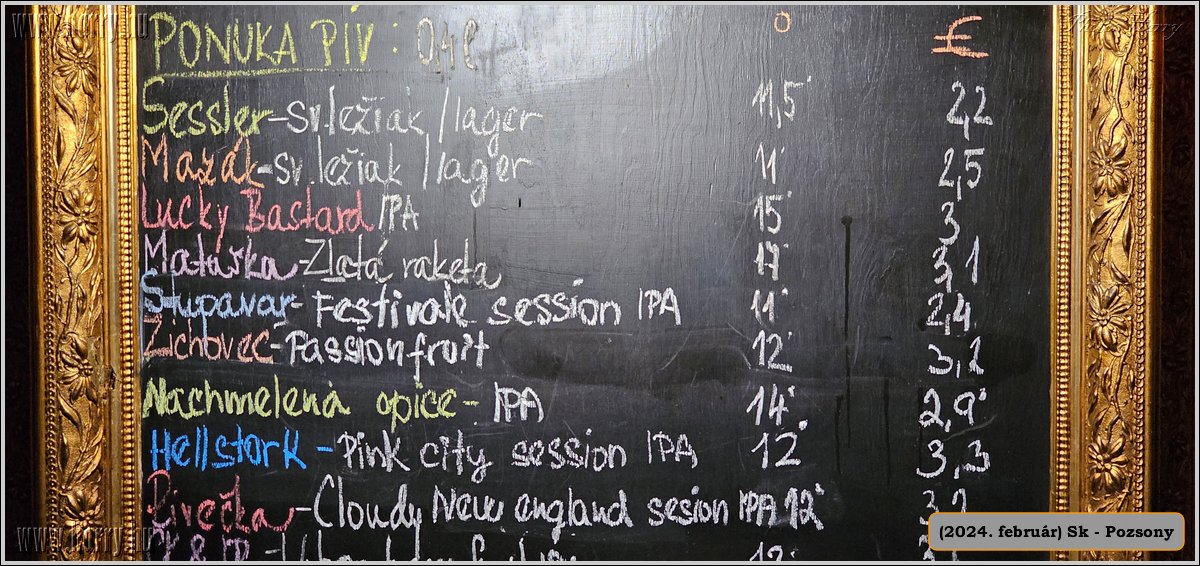 PONUKA PÍV : 0,4l ° €
Sessler - sv.ležiak / lager 11,5° 2,2
Mazák - sv ležiak / lager 11° 2,5
Lucky Bastard IPA 15° 3
Matuška - Zlatá raketa 17° 3,1
Stupavar - Festivale session IPA 11° 2,4
Zichovec - Passionfruit 12° 3,2
Nachmelená opice - IPA 14° 2,9
Hellstork - Pink city session IPA 12° 3,3
Pivečka - Cloudy New england sesion IPA 12°
(2024. február) Sk - Pozsony